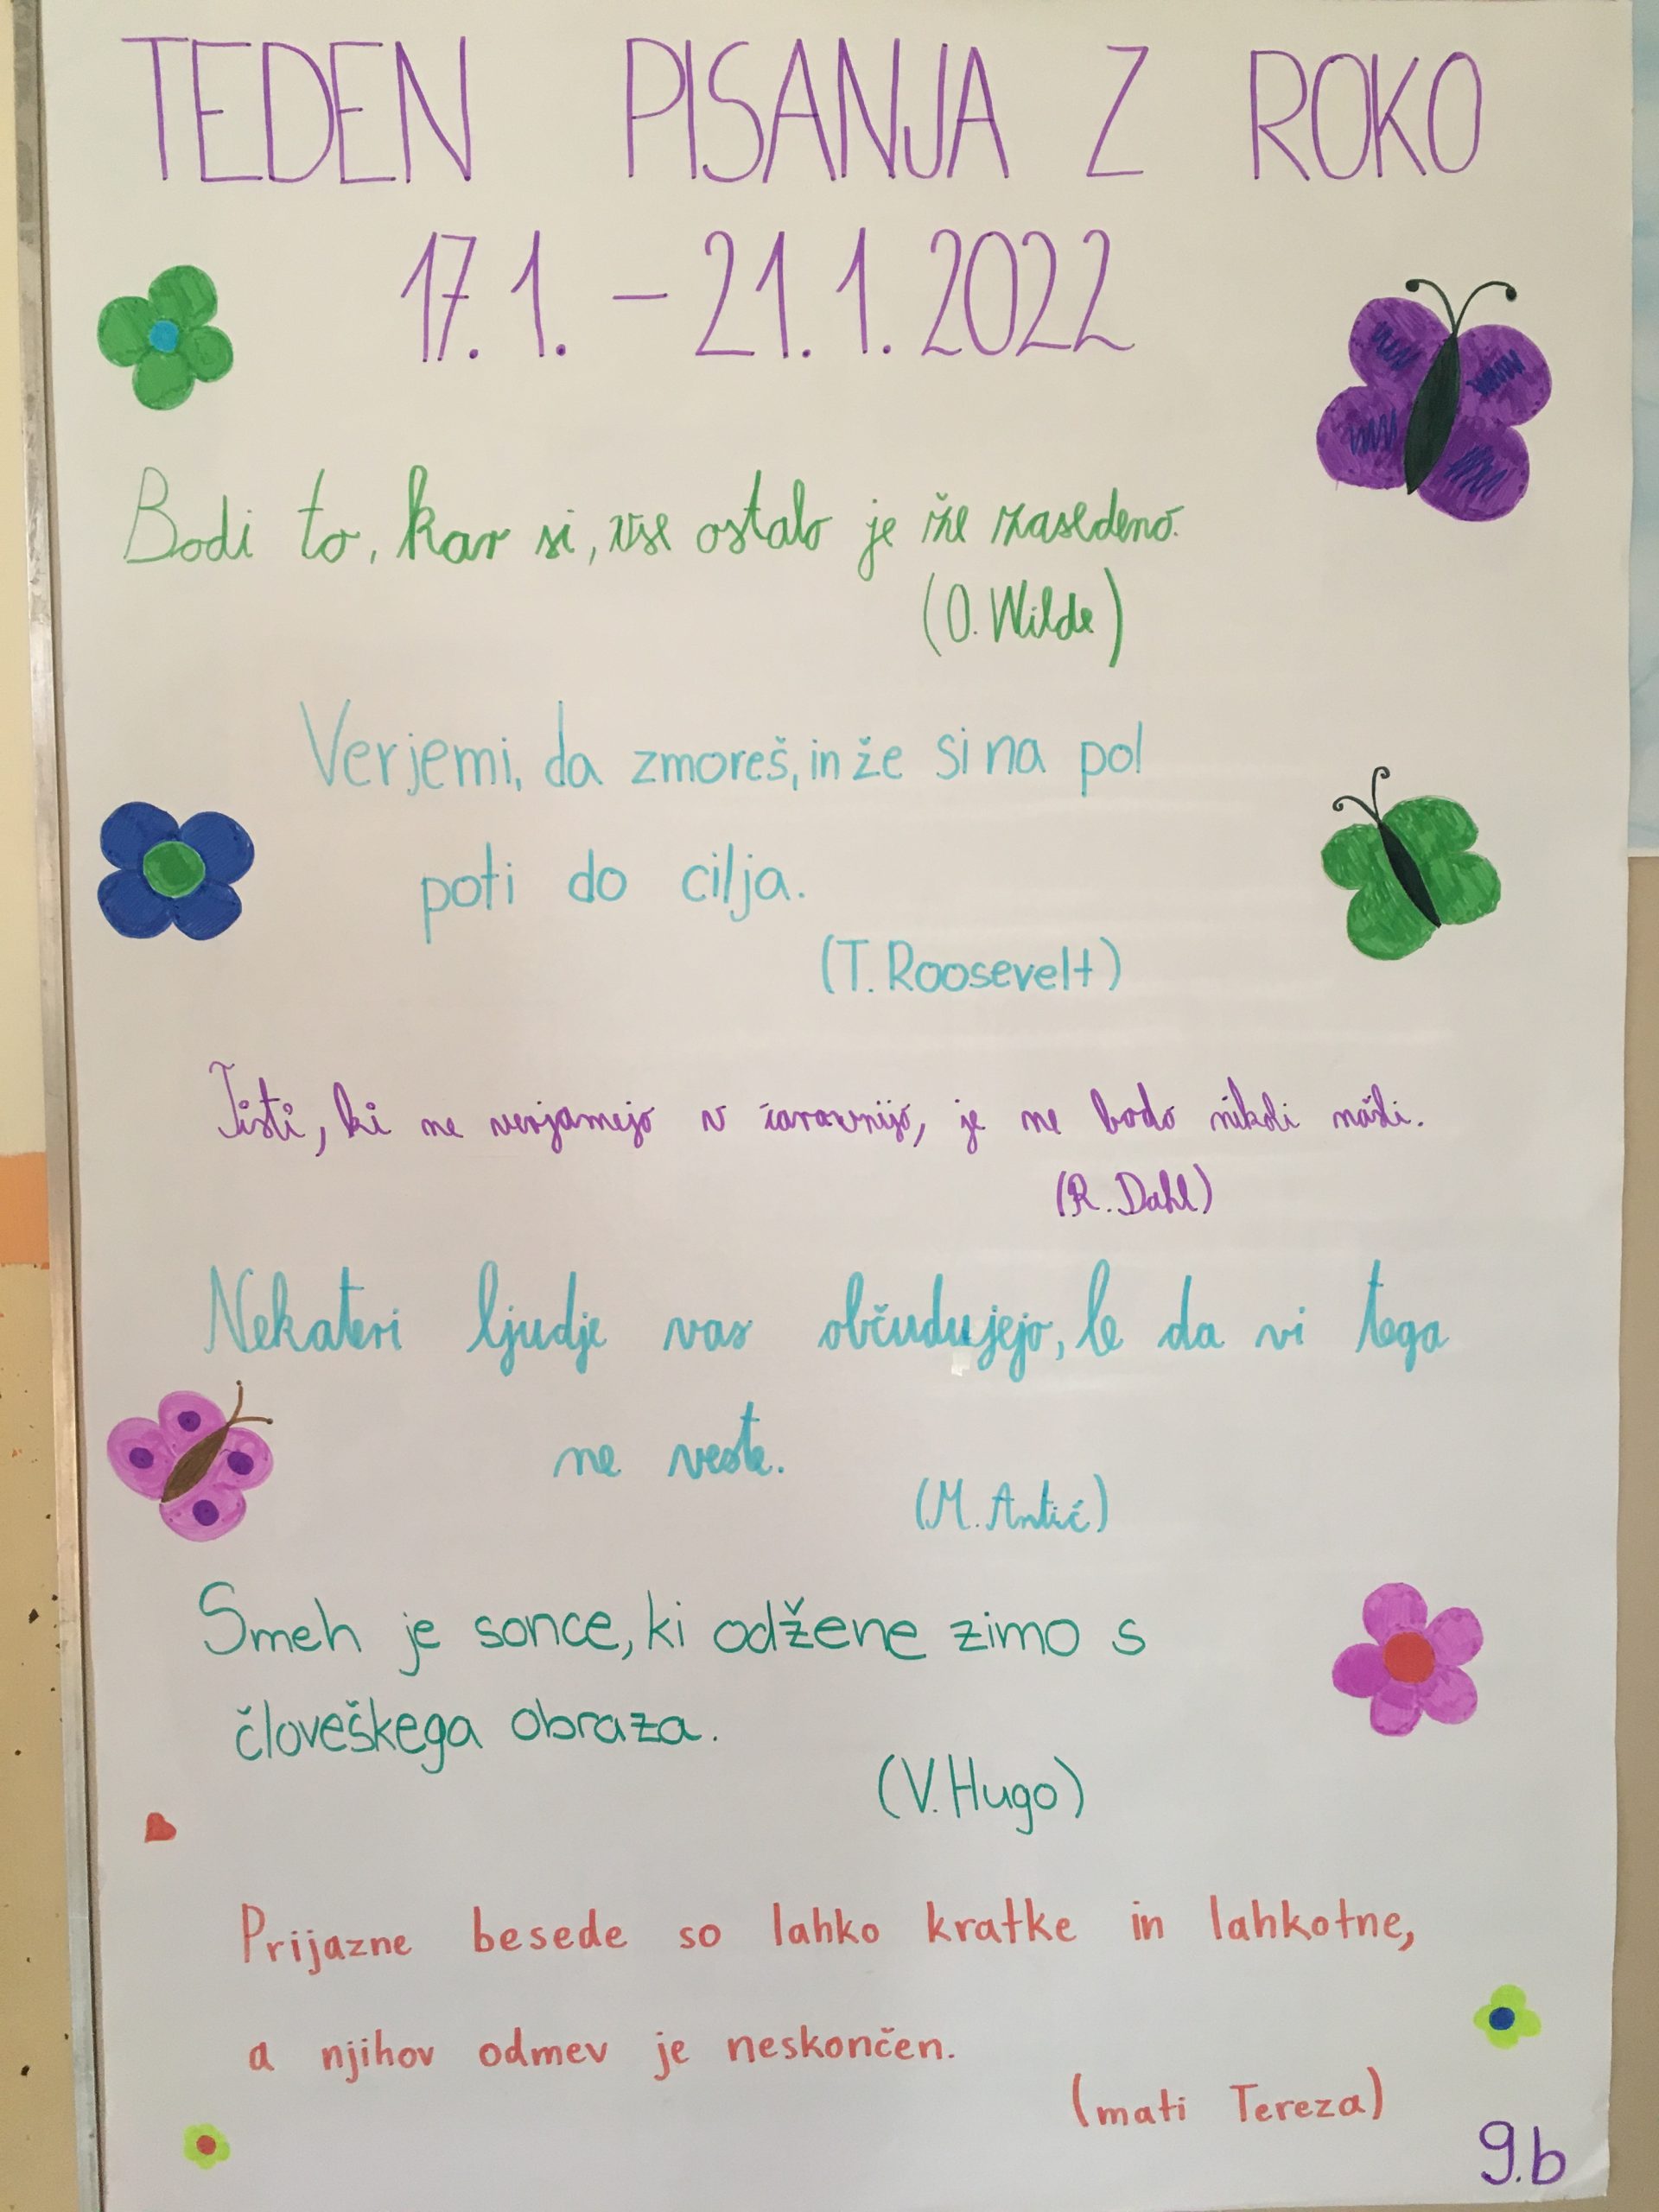 TEDEN PISANJA Z ROKO
17. 1. – 21. 1. 2022
Bodi to, kar si, vse ostalo je že zasedeno.
(O. Wilde)
Verjemi, da zmoreš, in že si na pol
poti do cilja.
(T. Roosevelt)
Tisti, ki ne verjamejo v čarovnijo, je ne bodo nikoli našli.
(R. Dahl)
Nekateri ljudje vas občudujejo, le da vi tega
ne veste.
(M. Antić)
Smeh je sonce, ki odžene zimo s
človeškega obraza.
(V. Hugo)
Prijazne besede so lahko kratke in lahkotne,
a njihov odmev je neskončen.
(mati Tereza)
9.b